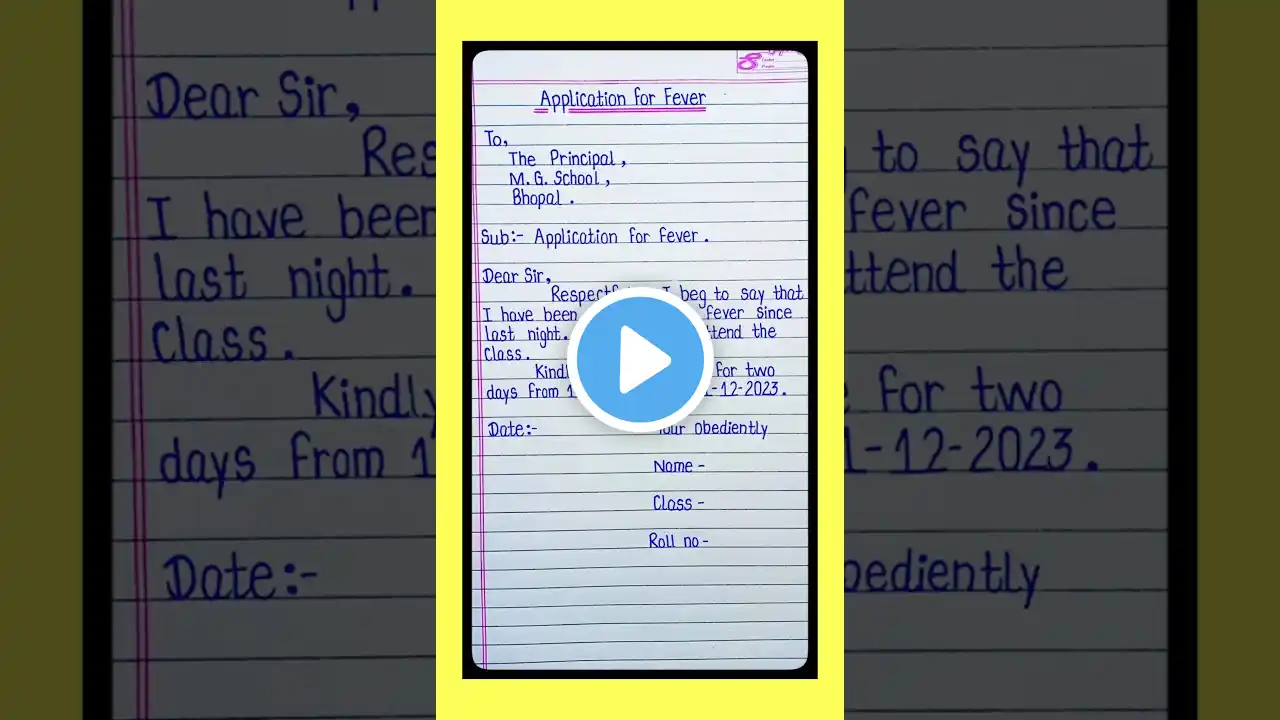 Application for Fever
To,
The Principal,
M.G. School,
Bhopal.
Sub:- Application for fever.
Dear Sir,
I beg to say that
I have been fever since
last night. the
Class.
for two
days from -12-2023.
Date:- Your Obediently
Name -
Class -
Roll no -